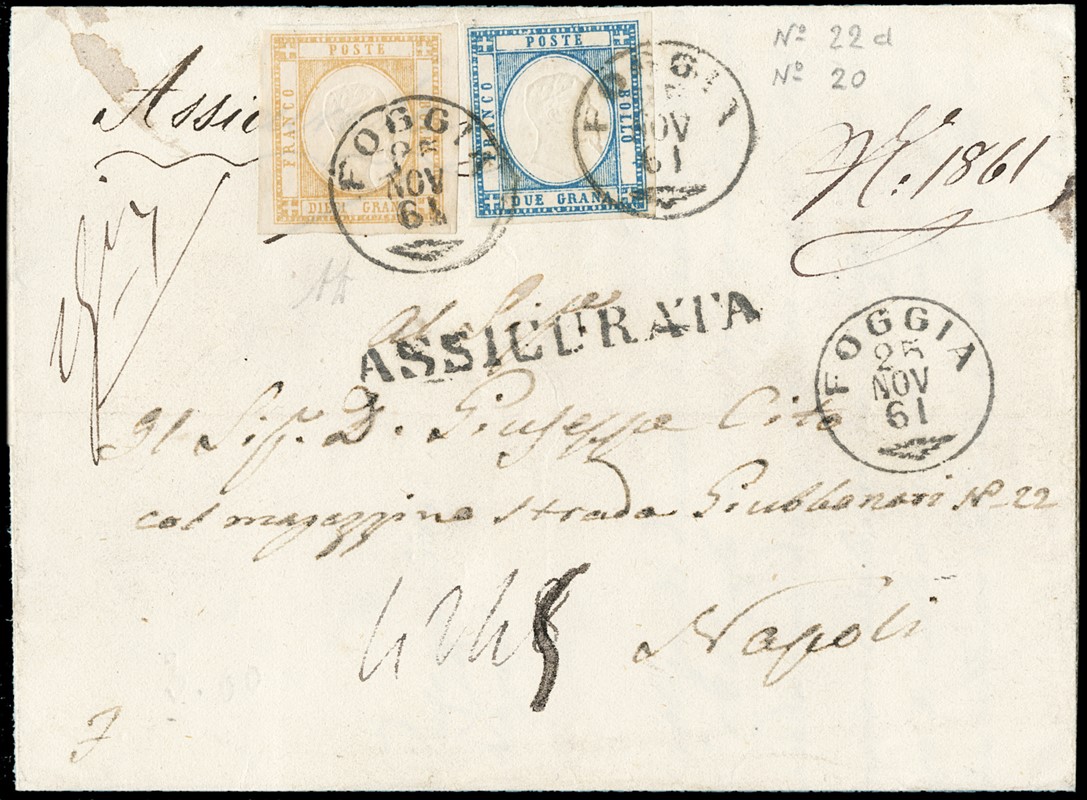 POSTE
FRANCO
DIECI GRANA
POSTE
FRANCO
BOLLO
DUE GRANA
Nº 22 d
Nº 20
Assic
FOGGIA
25
NOV
61
FOGGIA
25
NOV
61
Nº. 1861
ASSICURATA
FOGGIA
25
NOV
61
Il Sig. D. Giuseppe Cito
col magazzino strada Giubbonari Nº 22
Napoli